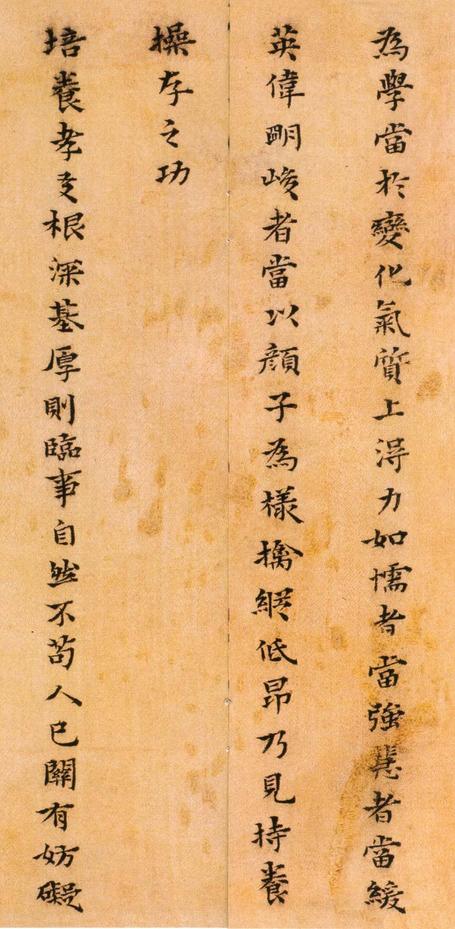 為學當於變化氣質上得力如懦者當強急者當緩
英偉眀峻者當以顏子為樣擒縱低昂乃見持養
操存之功
培養孝友根深基厚則臨事自然不苟人已關有妨礙